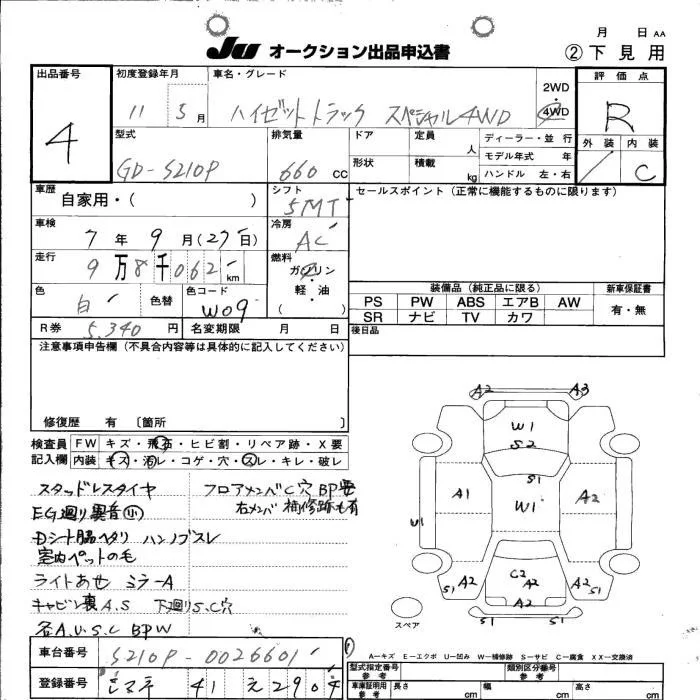 月 日 AA
JU オークション出品申込書
② 下見用
出品番号
4
初度登録年月
11 5月
車名・グレード
ハイゼットトラック スペシャル4WD
2WD
・
4WD
評価点
R
外装 内装
C
型式
GD-S210P
排気量
660 CC
ドア
定員 人
形状
積載 kg
ディーラー・並行
モデル年式 年
ハンドル 左・右
車歴
自家用・( )
シフト
5MT
セールスポイント(正常に機能するものに限ります)
車検
7年 9月(27日)
冷房
AC
走行
9万8千062km
燃料
ガソリン
・
軽・油
( )
色
白
色替
色コード
W09
装備品(純正品に限る)
新車保証書
PS PW ABS エアB AW
SR ナビ TV カワ
有・無
R券 5,340円
名変期限 月 日
後日品
注意事項申告欄(不具合内容等は具体的に記入してください)
修復歴 有 〔箇所 〕
検査員記入欄
FW キズ・飛石・ヒビ割・リペア跡・X要
内装 キズ・汚レ・コゲ・穴・スレ・キレ・破レ
スタッドレスタイヤ
フロアメンバC穴 BP要
EG廻り異音(小)
右メンバ 補修跡も有
Dシート脇ヘタリ ハンドブスレ
室内ペットの毛
ライトあせ ミラーA
キャビン裏A.S 下廻りS.C穴
各A.U.S.C BPW
A2 A3
W1
S2
S1
A1
W1
A2
U1
C2
A2
A2
A2
S1
A2
S1
S1 S1
スペア
A−キズ E−エクボ U−凹み W−補修跡 S−サビ C−腐食 XX−交換済
車台番号
S210P-0026601
登録番号
41 え2904
型式指定番号
参考
類別区分番号
参考
車庫証明用
参考
長さ cm
幅 cm
高さ cm